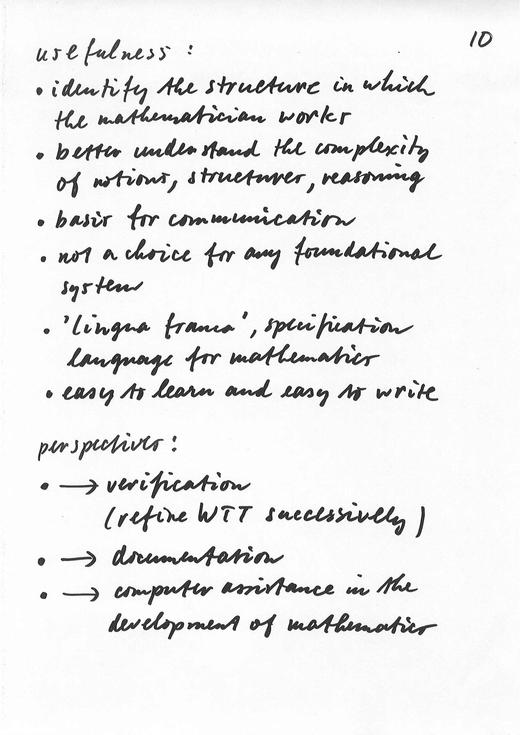 10
usefulness:
• identify the structure in which
the mathematician works
• better understand the complexity
of notions, structures, reasoning
• basis for communication
• not a choice for any foundational
system
• 'lingua franca', specification
language for mathematics
• easy to learn and easy to write
perspectives:
• → verification
(refine WTT successively)
• → documentation
• → computer assistance in the
development of mathematics